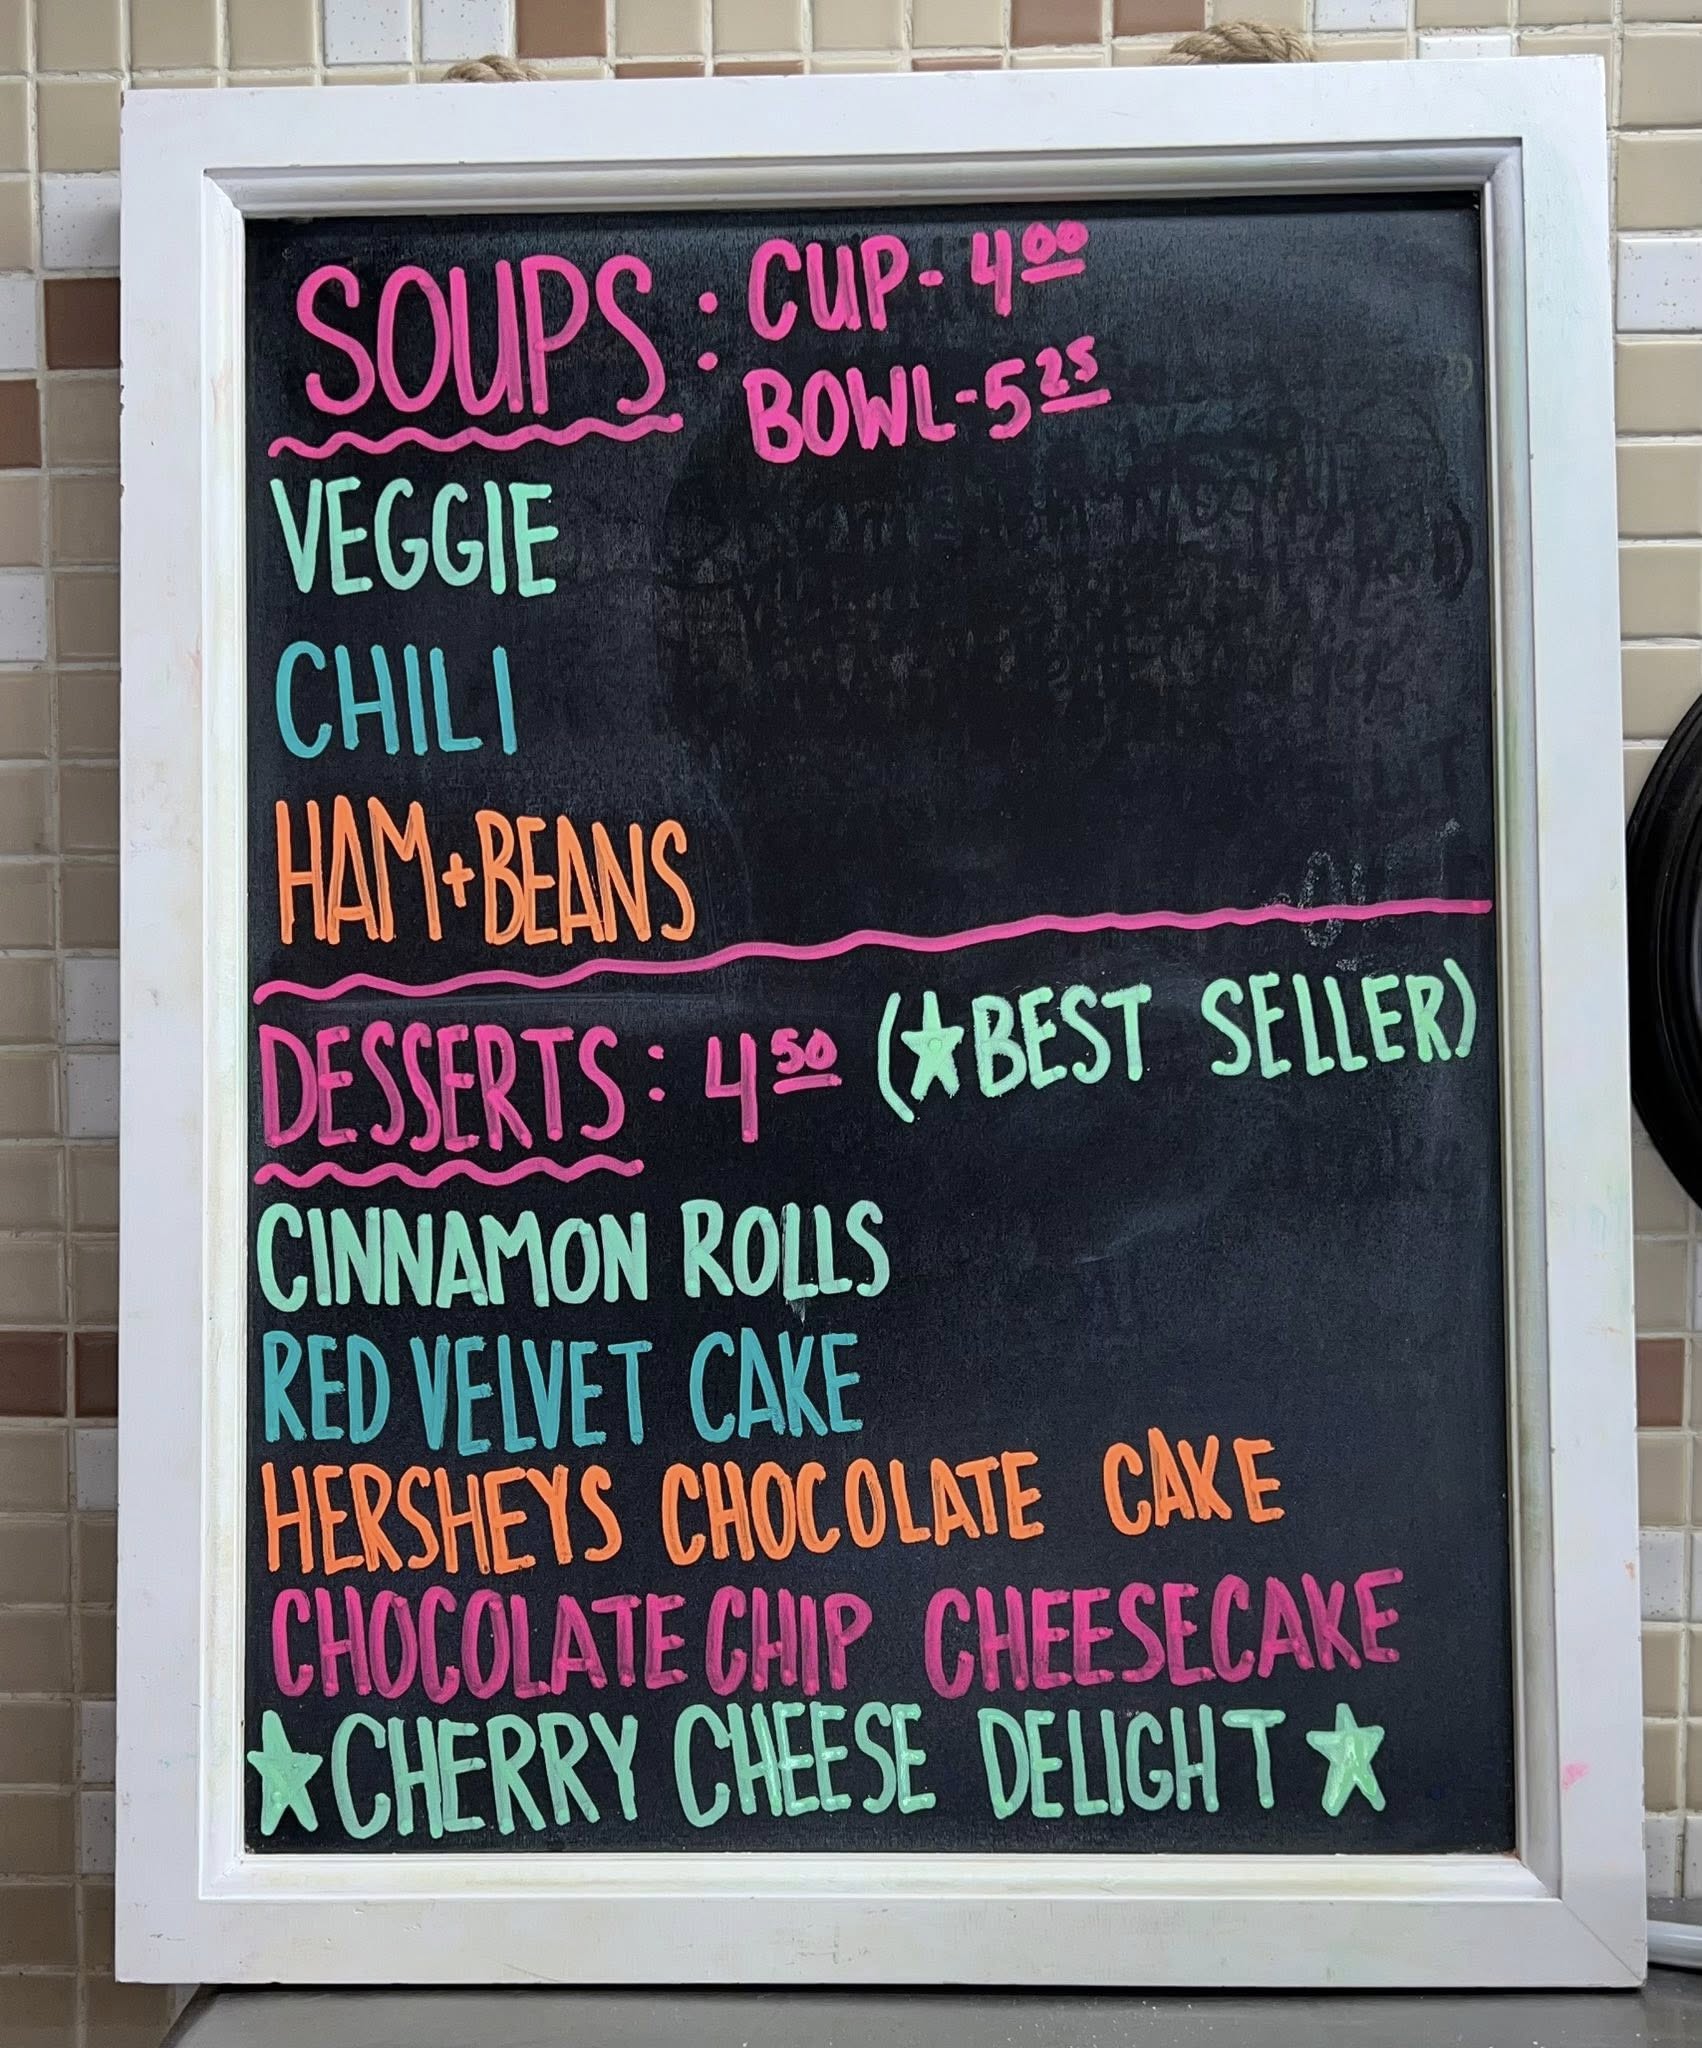 SOUPS: CUP- 4.00
BOWL-5.25
VEGGIE
CHILI
HAM+BEANS
DESSERTS: 4.50 (★BEST SELLER)
CINNAMON ROLLS
RED VELVET CAKE
HERSHEYS CHOCOLATE CAKE
CHOCOLATE CHIP CHEESECAKE
★CHERRY CHEESE DELIGHT★